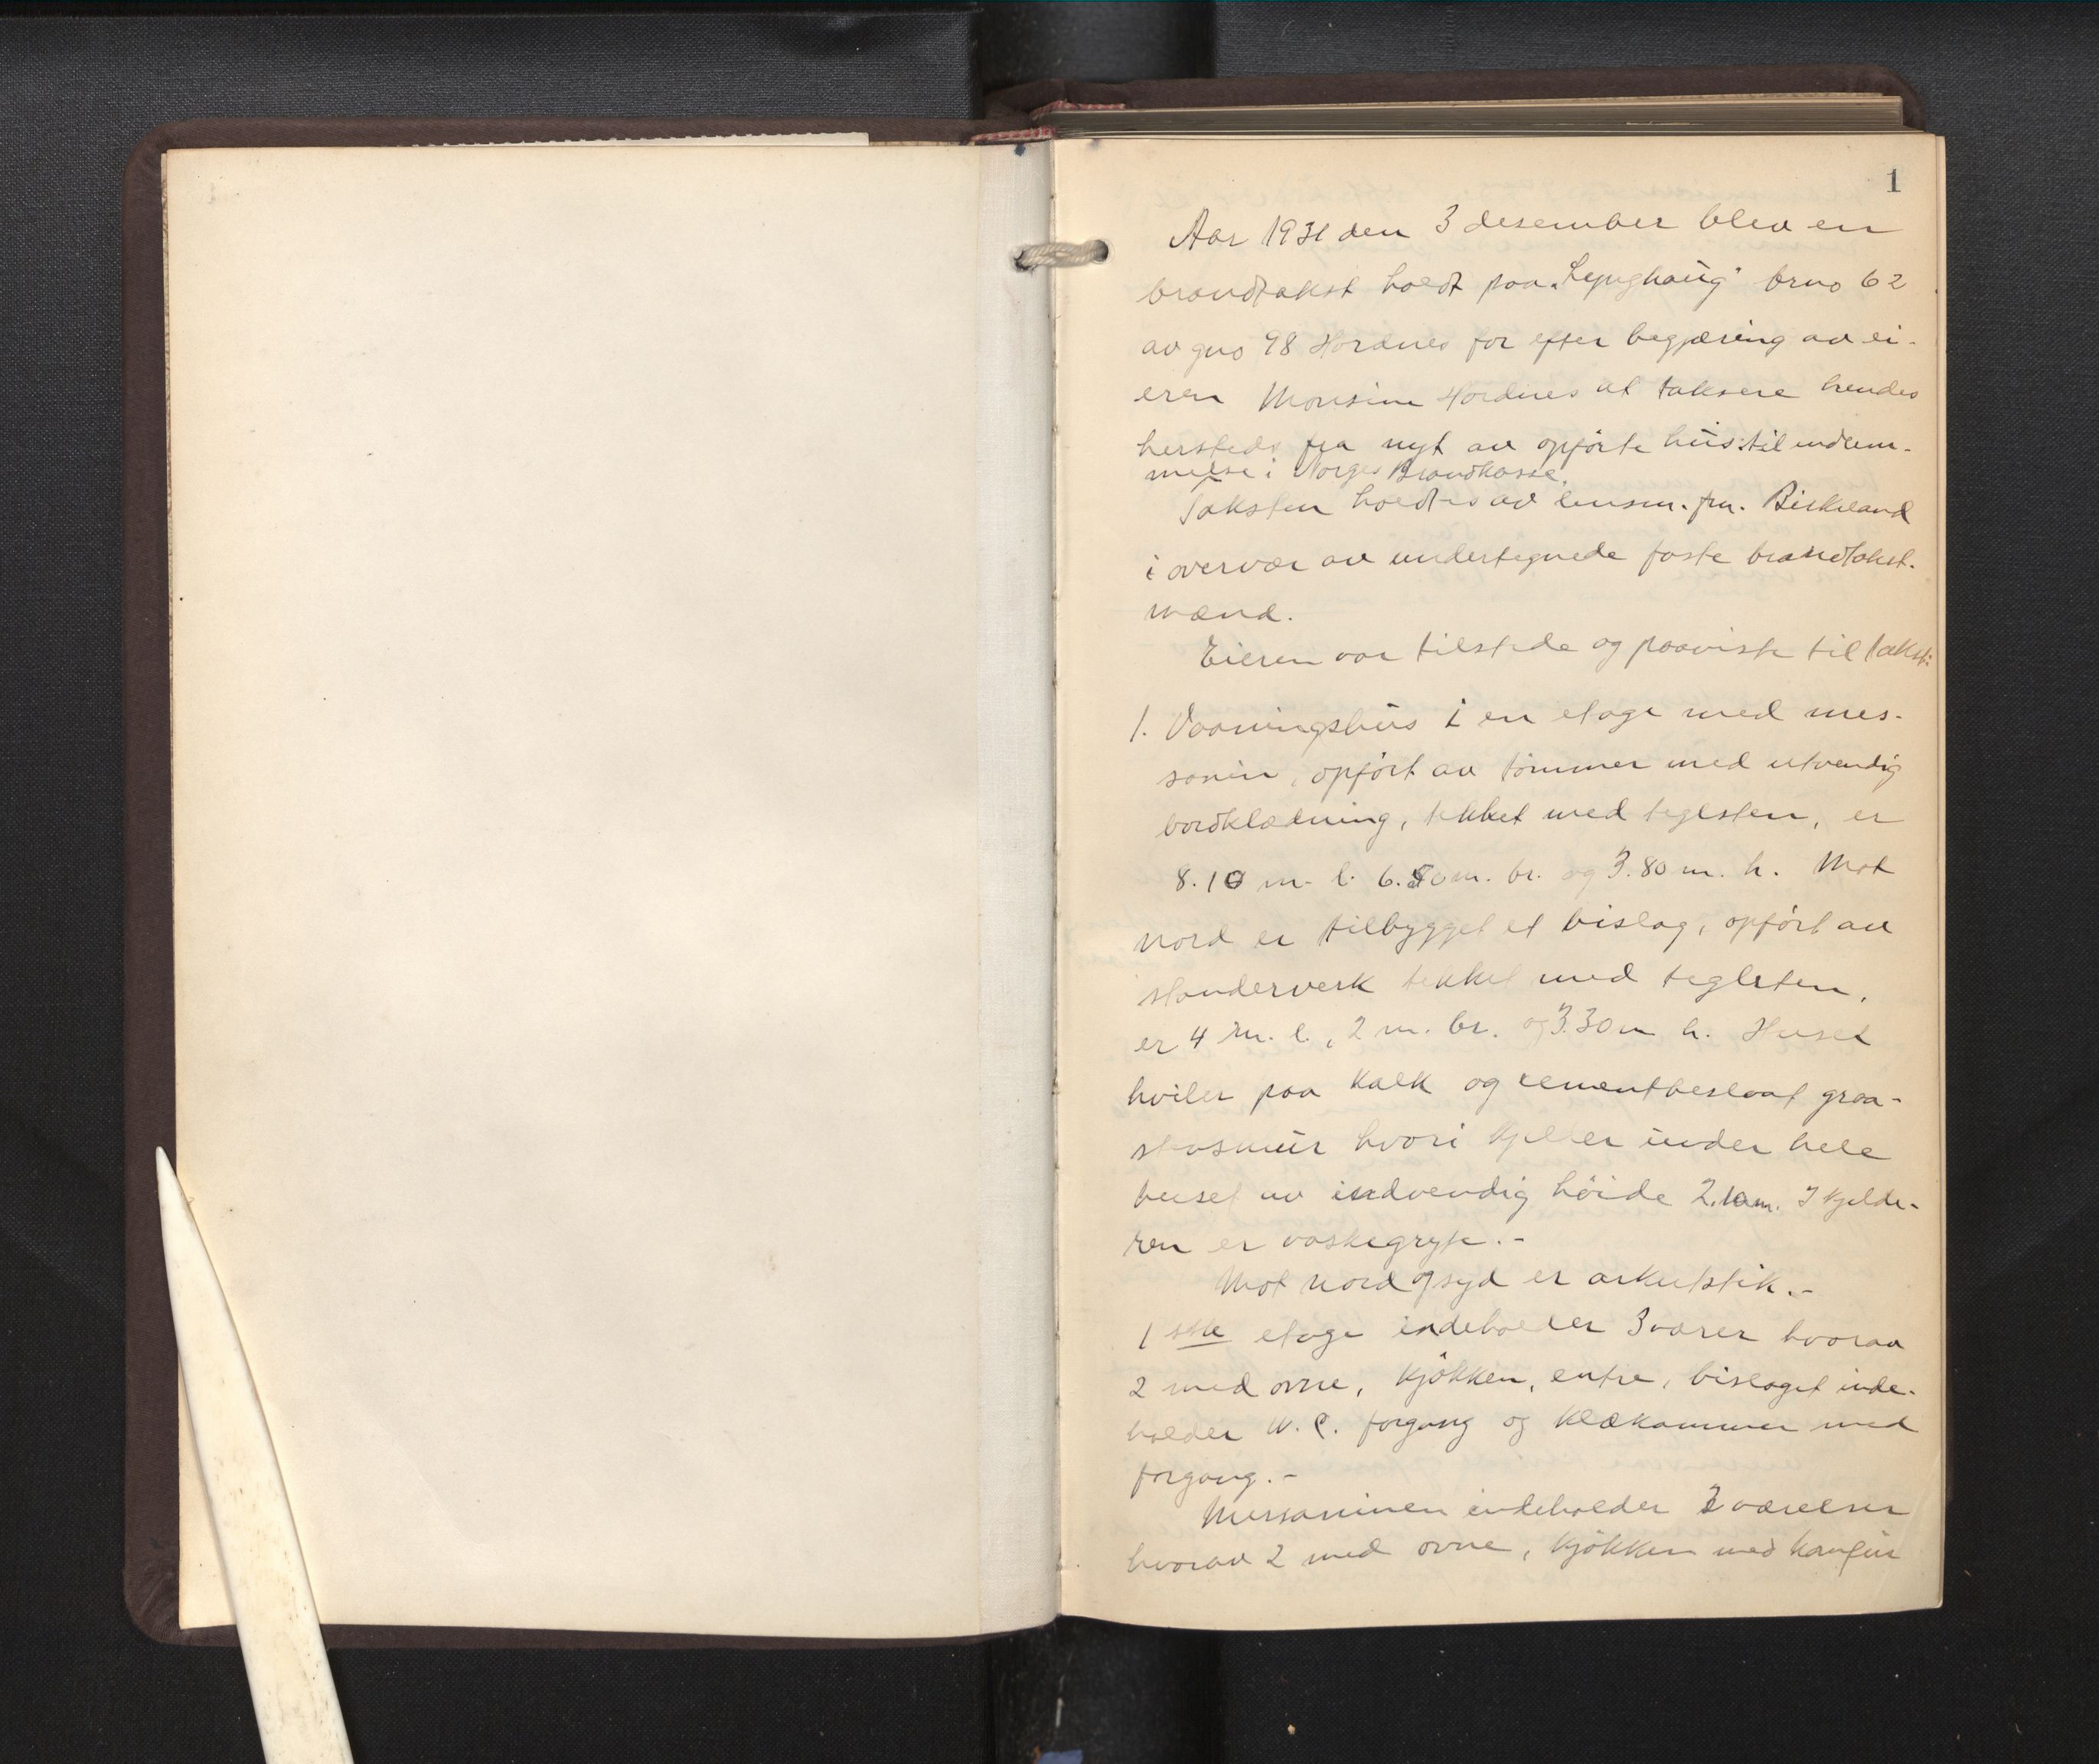 1
Aar 1931 den 3 desember blev en
brandtakst holdt paa "Lynghaug" brno 62
av gno 98 Hordnes for efter begjæring av ei-
eren Monsine Hordnes at taksere hendes
hersteds fra nyt av opførte hus til indlem-
melse i Norges Brandkasse.
Taksten holdtes av lensm. fm. Birkeland
i overvær av undertegnede faste brandtakst-
mænd.
Eieren var tilstede og paaviste til takst:
1. Vaaningshus i en etage med mes-
sanin, opført av tømmer med utvendig
bordklædning, tekket med teglsten, er
8.10 m. l. 6.50 m. br. og 3.80 m. h. Mot
nord er tilbygget et bislag, opført av
standerverk tekket med teglsten,
er 4 m. l., 2 m. br. og 3.30 m h. Huset
hviler paa kalk og cementbeslaat graa-
stensmur hvori kjelder under hele
huset av indvendig høide 2.10 m. I kjelde-
ren er vaskegryte.-
Mot nord og syd er arkutstik.-
1ste etage indeholder 3 værer hvorav
2 med ovne, kjøkken, entre, bislaget inde-
holder W.C. forgang og klækammer med
forgang.-
Messaninen indeholder 3 værelser
hvorav 2 med ovne, kjøkken med komfur